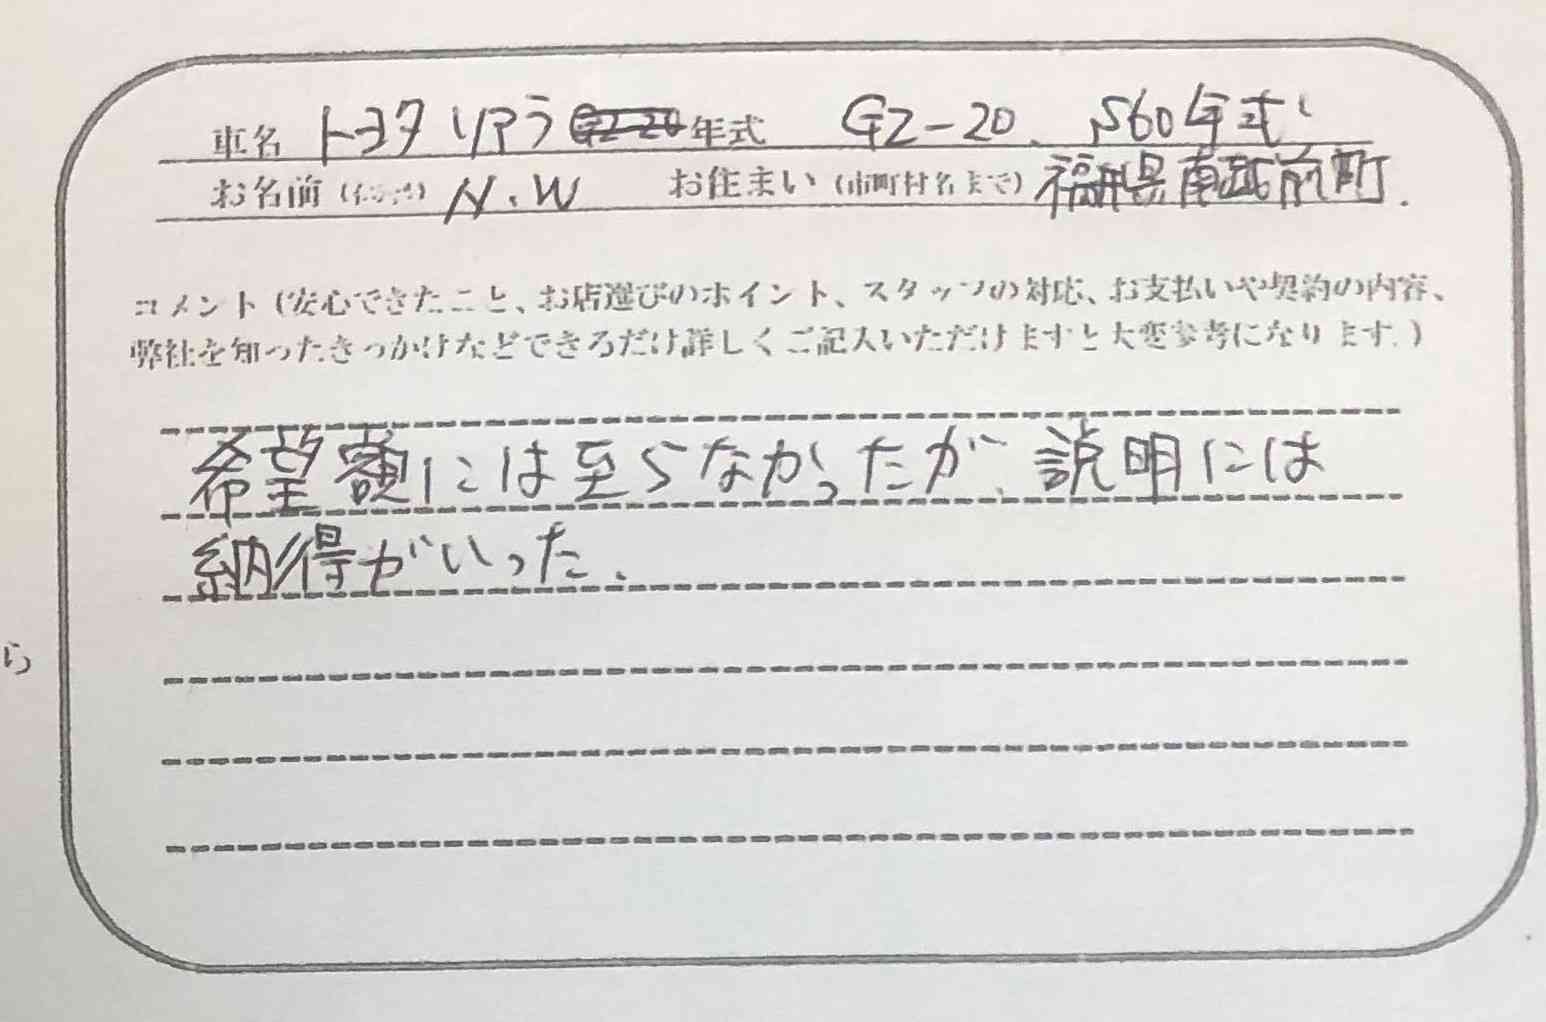 車名 トヨタ ソアラ 年式 GZ-20. S60年式
お名前 (イニシャル) N.W お住まい (市町村名まで) 福井県南越前町.
コメント (安心できたこと、お店選びのポイント、スタッフの対応、お支払いや契約の内容、
弊社を知ったきっかけなどできるだけ詳しくご記入いただけますと大変参考になります。)
希望額には至らなかったが、説明には
納得がいった。
ら